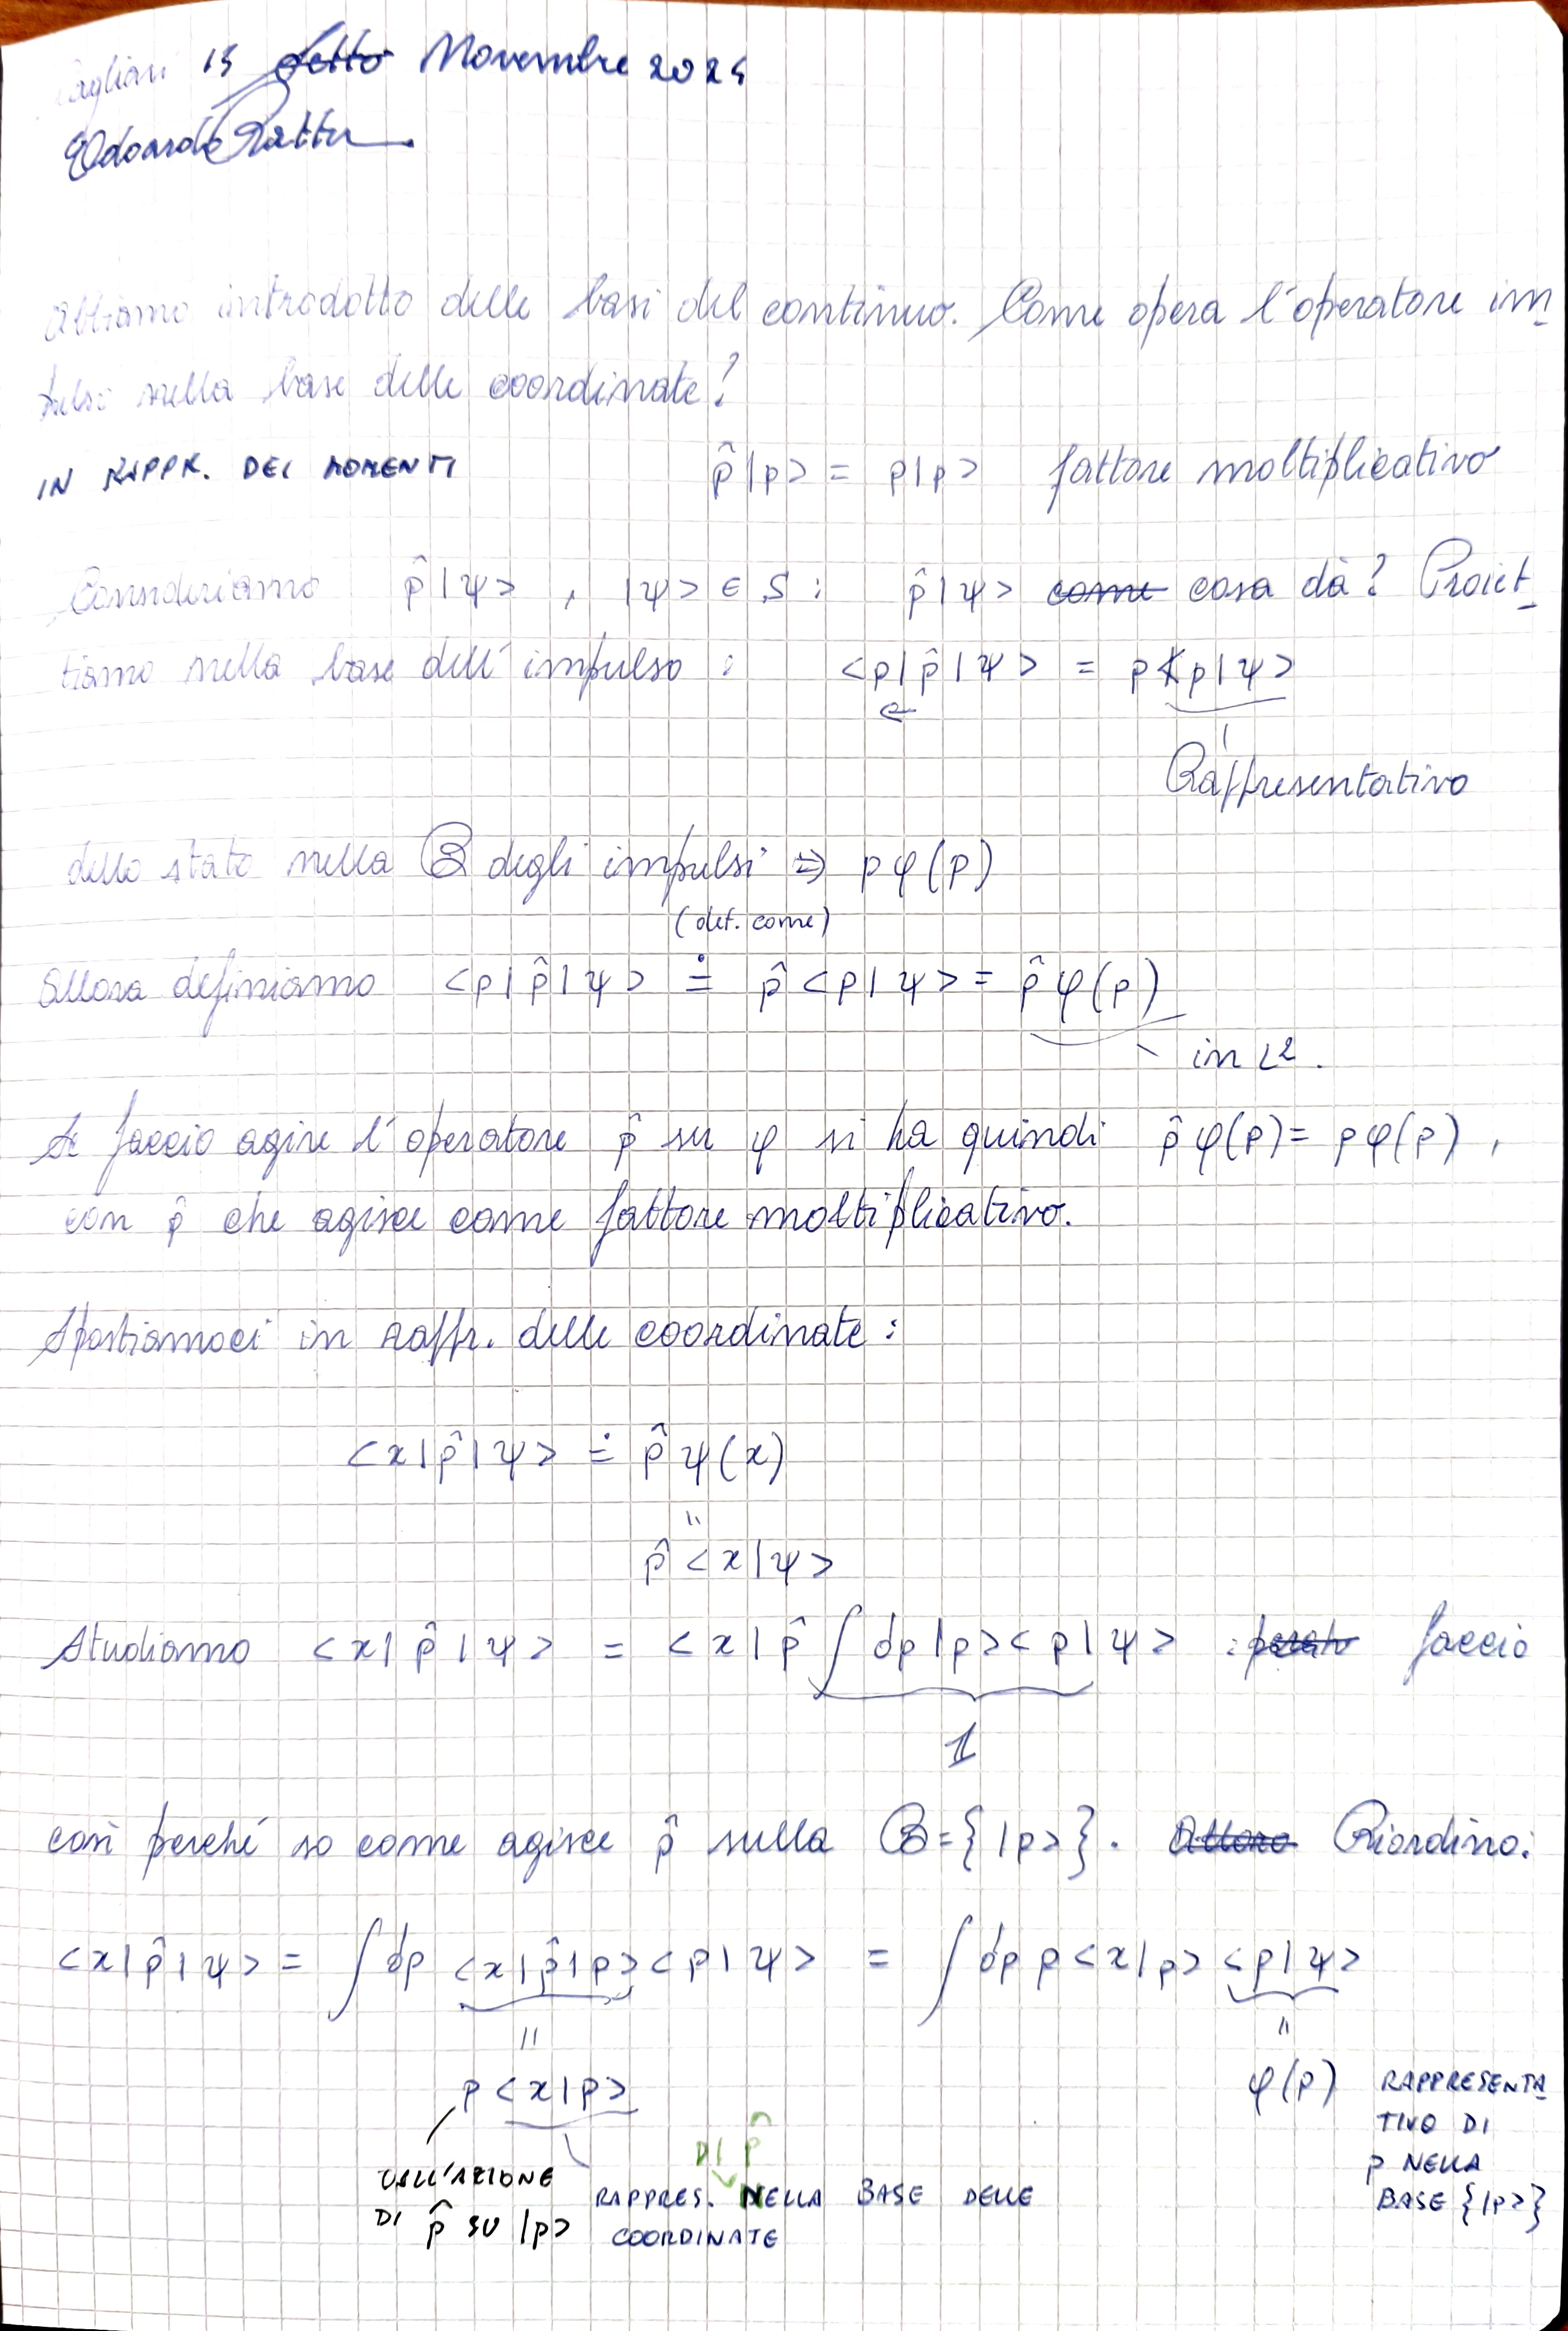 Cagliari 15 Novembre 2024
Edoardo
Abbiamo introdotto delle basi del continuo. Come opera l'operatore im
pulsi nella base delle coordinate?
IN RAPPR. DEI MOMENTI p̂|p> = p|p> fattore moltiplicativo
Consideriamo p̂|ψ> , |ψ> ∈ S : p̂|ψ> come cosa dà? Proiet
tiamo nella base dell'impulso : <p|p̂|ψ> = p<p|ψ>
Rappresentativo
dello stato nella B degli impulsi => pφ(p)
(def. come)
Allora definiamo <p|p̂|ψ> ≐ p̂<p|ψ> = p̂φ(p)
in L².
Se faccio agire l'operatore p̂ su φ si ha quindi p̂φ(p) = pφ(p) ,
con p̂ che agisce come fattore moltiplicativo.
Spostiamoci in rappr. delle coordinate :
<x|p̂|ψ> ≐ p̂ψ(x)
=
p̂<x|ψ>
Studiamo <x|p̂|ψ> = <x|p̂ ∫dp|p><p|ψ> : faccio
𝟙
così perché so come agisce p̂ sulla B={|p>}. Allora Riordino:
<x|p̂|ψ> = ∫dp <x|p̂|p><p|ψ> = ∫dp p<x|p><p|ψ>
= =
p<x|p> φ(p) RAPPRESENTA
TIVO DI
p NELLA
BASE {|p>}
DI p̂
DALL'AZIONE
DI p̂ SU |p>
RAPPRES. NELLA BASE DELLE
COORDINATE